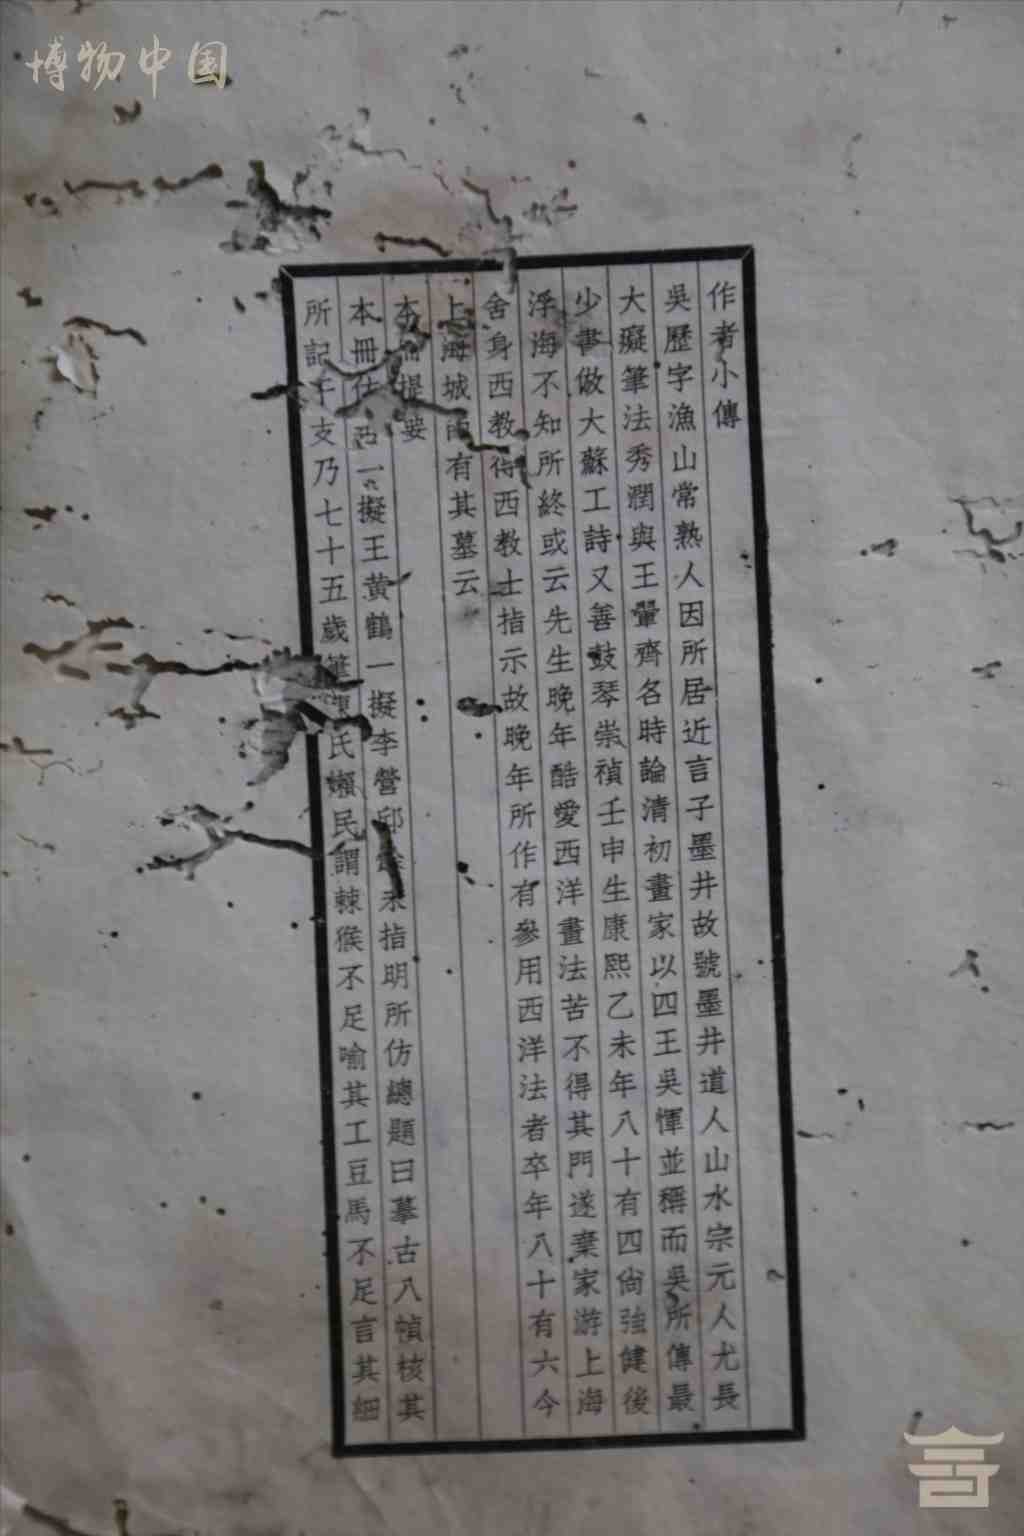 博物中国
作者小傳
吳歷字漁山常熟人因所居近言子墨井故號墨井道人山水宗元人尤長
大癡筆法秀潤與王翬齊名時論清初畫家以四王吳惲並稱而吳所傳最
少書倣大蘇工詩又善鼓琴崇禎壬申生康熙乙未年八十有四尙強健後
浮海不知所終或云先生晚年酷愛西洋畫法苦不得其門遂棄家游上海
舍身西教得西教士指示故晚年所作有參用西洋法者卒年八十有六今
上海城西有其墓云
本冊提要
本冊一擬王黃鶴一擬李營邱餘未指明所仿總題曰摹古八幀核其
所記干支乃七十五歲筆陳氏嬾民謂棘猴不足喻其工豆馬不足言其細